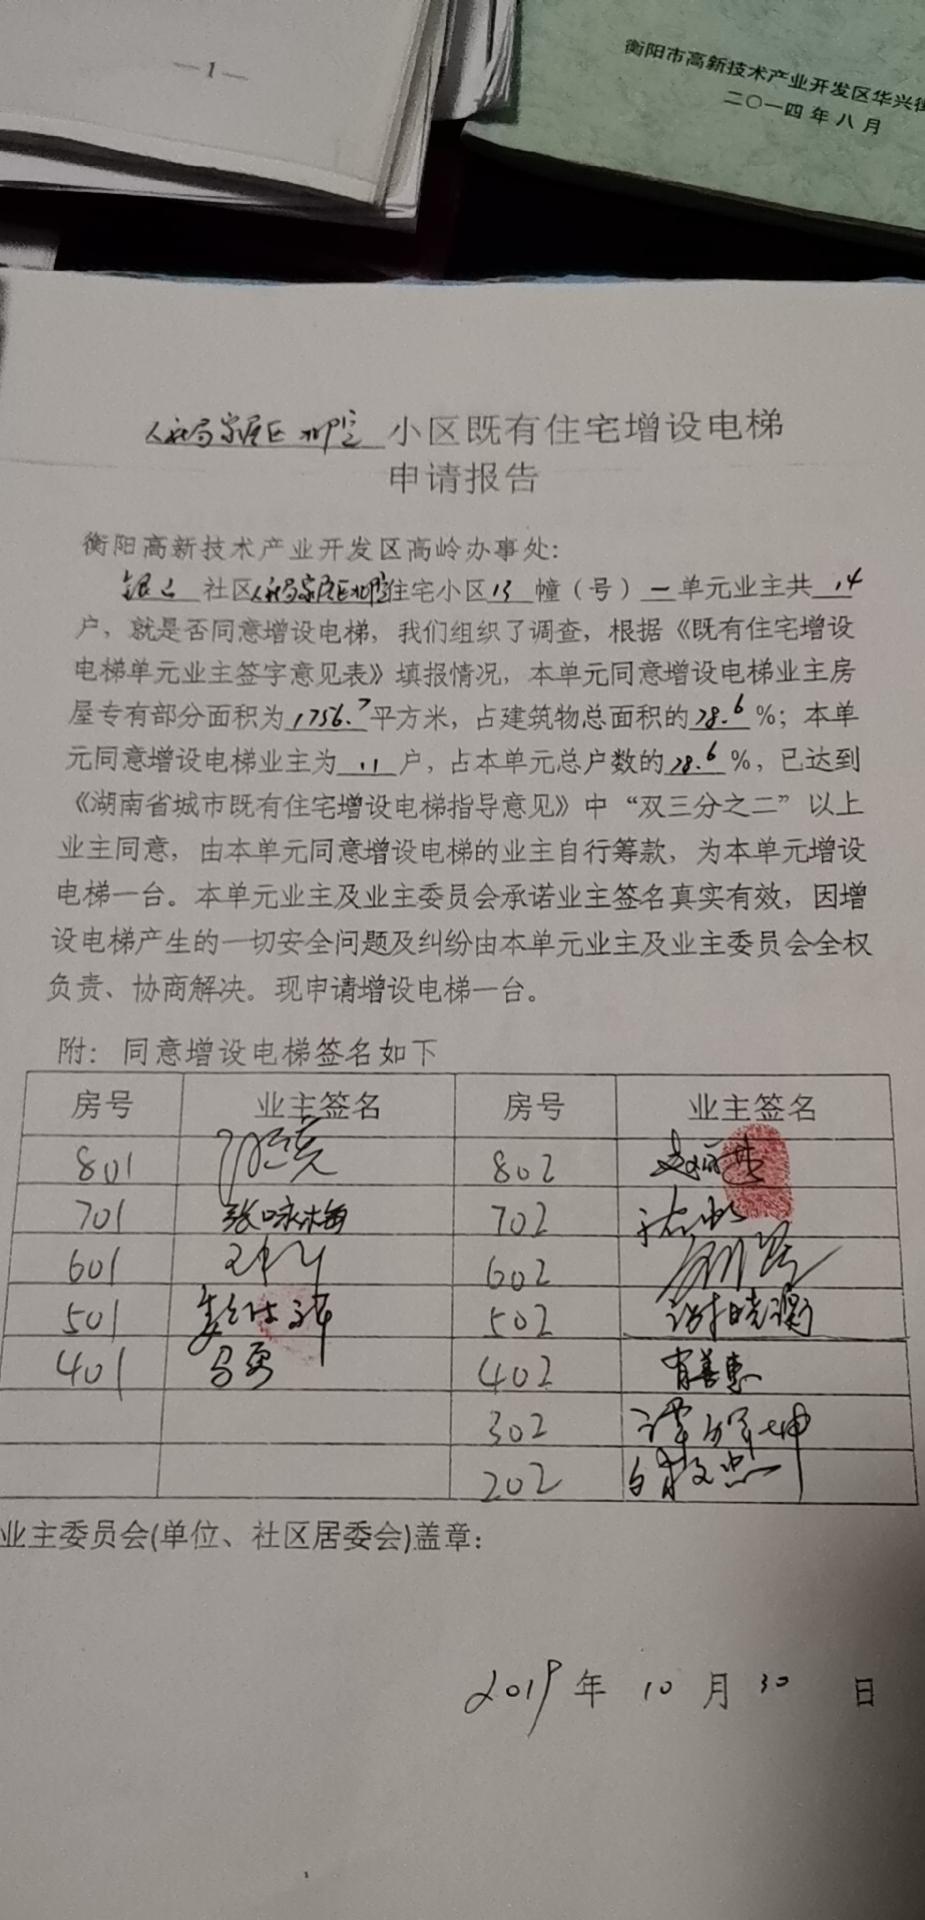 —1—
衡阳市高新技术产业开发区华兴街
二〇一四年八月
小区既有住宅增设电梯
申请报告
衡阳高新技术产业开发区高岭办事处:
社区 住宅小区13幢(号)一单元业主共14
户，就是否同意增设电梯，我们组织了调查，根据《既有住宅增设
电梯单元业主签字意见表》填报情况，本单元同意增设电梯业主房
屋专有部分面积为1756.7平方米，占建筑物总面积的78.6%；本单
元同意增设电梯业主为11户，占本单元总户数的78.6%，已达到
《湖南省城市既有住宅增设电梯指导意见》中“双三分之二”以上
业主同意，由本单元同意增设电梯的业主自行筹款，为本单元增设
电梯一台。本单元业主及业主委员会承诺业主签名真实有效，因增
设电梯产生的一切安全问题及纠纷由本单元业主及业主委员会全权
负责、协商解决。现申请增设电梯一台。
附：同意增设电梯签名如下
房号 业主签名 房号 业主签名
801 802
701 张咏梅 702
601 602
501 502 谢晓衡
401 马勇 402 肖善惠
302
202
业主委员会(单位、社区居委会)盖章:
2019年10月30日